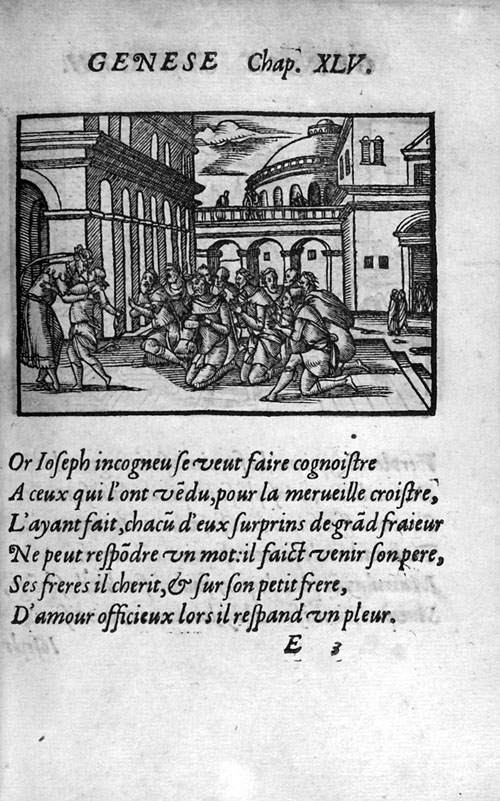 GENESE Chap. XLV.
Or Ioseph incogneu se veut faire cognoiſtre
A ceux qui l'ont vẽdu, pour la merueille croiſtre,
L'ayant fait, chacũ d'eux ſurprins de grãd fraieur
Ne peut reſpõdre vn mot: il faict venir ſon pere,
Ses freres il cherit, & ſur ſon petit frere,
D'amour officieux lors il reſpand vn pleur.
E 3